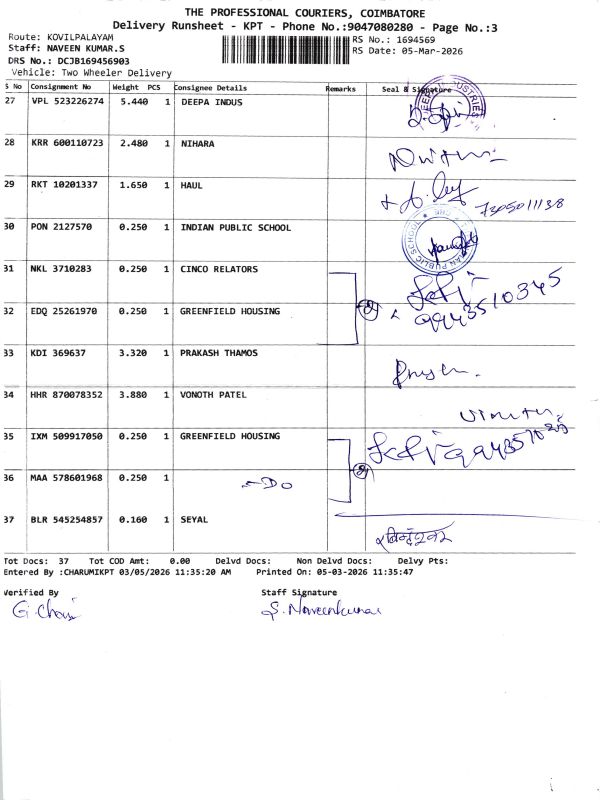 THE PROFESSIONAL COURIERS, COIMBATORE
Delivery Runsheet - KPT - Phone No.:9047080280 - Page No.:3
Route: KOVILPALAYAM
Staff: NAVEEN KUMAR.S
DRS No.: DCJB169456903
Vehicle: Two Wheeler Delivery
RS No.: 1694569
RS Date: 05-Mar-2026
S No Consignment No Weight PCS Consignee Details Remarks Seal & Signature
27 VPL 523226274 5.440 1 DEEPA INDUS
28 KRR 600110723 2.480 1 NIHARA
29 RKT 10201337 1.650 1 HAUL 7305011138
30 PON 2127570 0.250 1 INDIAN PUBLIC SCHOOL
31 NKL 3710283 0.250 1 CINCO RELATORS
32 EDQ 25261970 0.250 1 GREENFIELD HOUSING 2 9943510345
33 KDI 369637 3.320 1 PRAKASH THAMOS
34 HHR 870078352 3.880 1 VONOTH PATEL
35 IXM 509917050 0.250 1 GREENFIELD HOUSING
36 MAA 578601968 0.250 1 -Do 2
37 BLR 545254857 0.160 1 SEYAL
Tot Docs: 37 Tot COD Amt: 0.00 Delvd Docs: Non Delvd Docs: Delvy Pts:
Entered By :CHARUMIKPT 03/05/2026 11:35:20 AM Printed On: 05-03-2026 11:35:47
Verified By Staff Signature
S. Naveenkumar